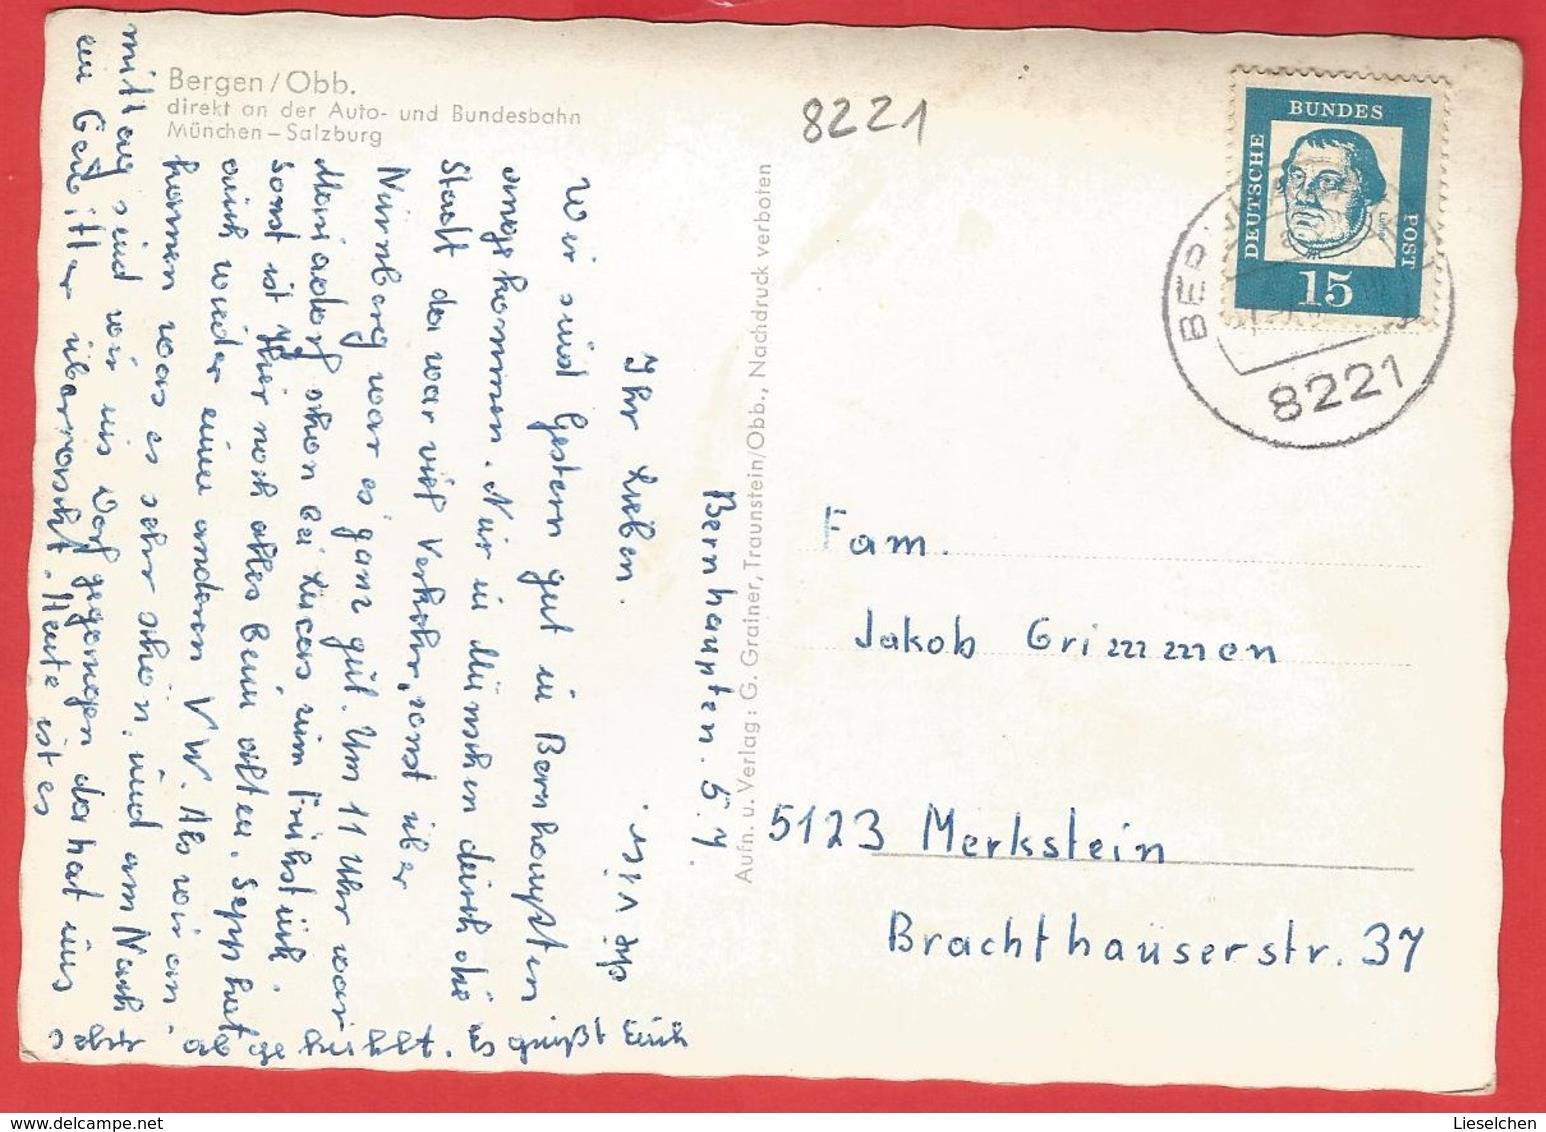 Bergen / Obb.
direkt an der Auto- und Bundesbahn
München – Salzburg
8221
DEUTSCHE BUNDES POST
15
BER
8221
Aufn. u. Verlag: G. Grainer, Traunstein/Obb., Nachdruck verboten
Bernhaupten. 5.7.
Ihr Lieben.
Wir sind Gestern gut in Bernhaupten
angekommen. Nur in München durch die
Stadt da war viel Verkehr, sonst über
Nürnberg war es ganz gut. Um 11 Uhr war
schon bei Lucas zum Frühstück.
Sonst ist Hier noch alles beim alten. Sepp hat
auch wieder einen anderen VW. Als wir an-
kamen war es sehr schön, und am Nach
mittag sind wir ins Dorf gegangen da hat uns
ein Gewitter überrascht. Heute ist es
sehr abgekühlt. Es grüßt Euch
Fam.
Jakob Grimmen
5123 Merkstein
Brachthäuserstr. 37
Lieselchen